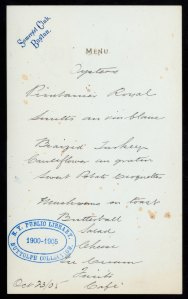 Somerset Club,
Boston.
MENU
Oysters
Printanier Royal
Smelts au vin blanc
Braized Turkey
Cauliflower au gratin
Sweet Potato Croquettes
Mushrooms on toast
Butterball
Salad
Cheese
Ice Cream
Fruits
Café
N.Y. PUBLIC LIBRARY
1900-1905
BUTTOLPH COLLECTION
Oct 23/05